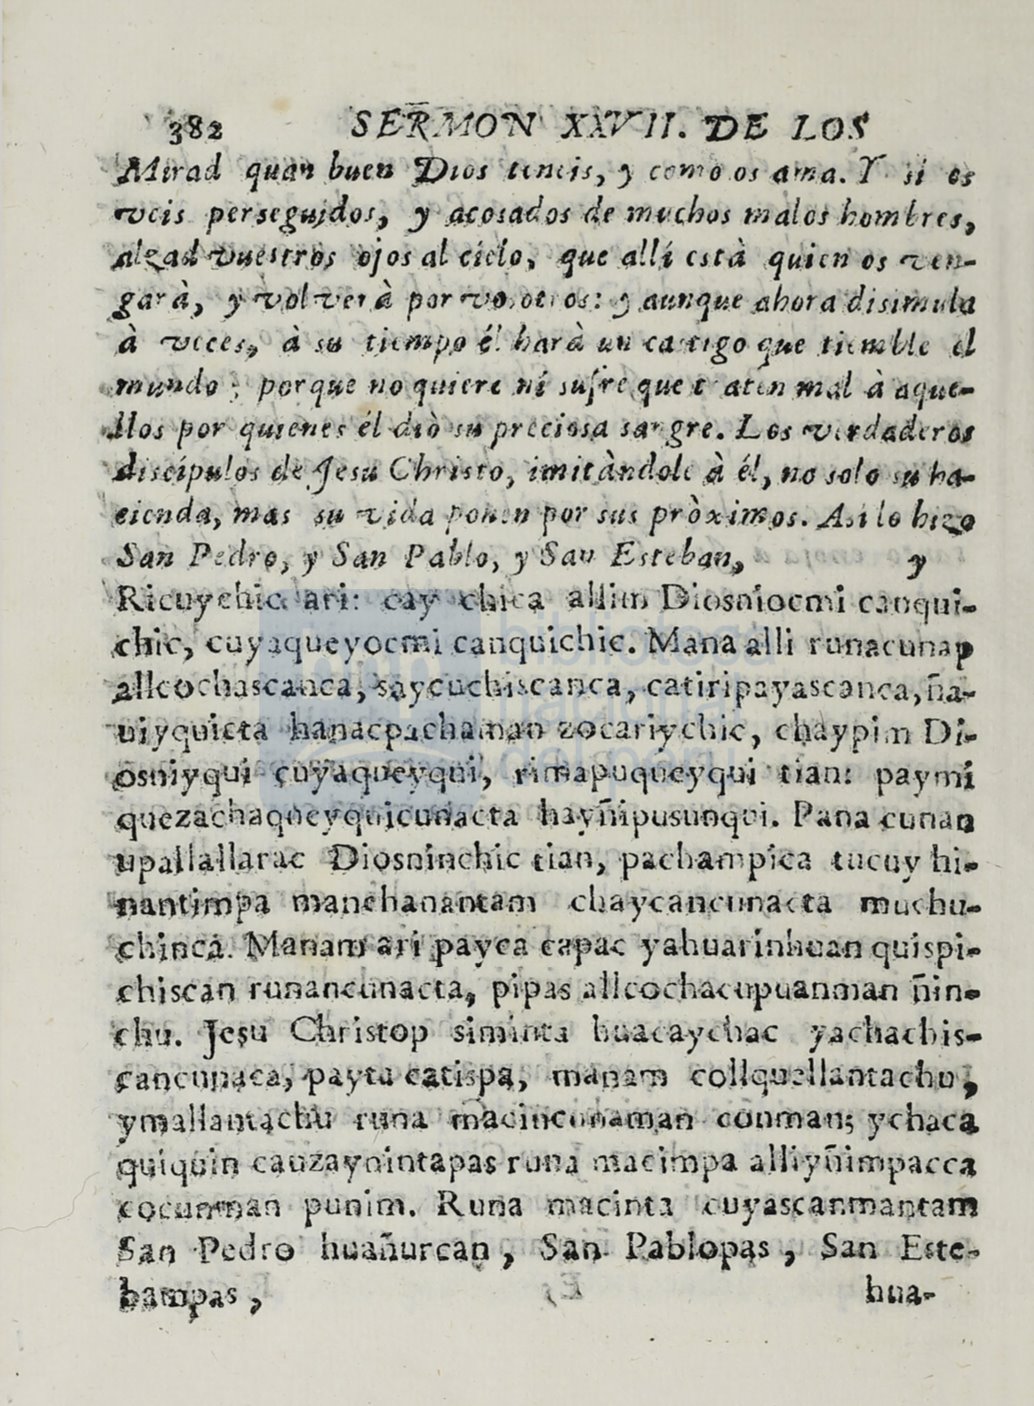 382 SERMON XXVII. DE LOS
Mirad quan buen Dios teneis, y como os ama. Y si os
veis perseguidos, y acosados de muchos malos hombres,
alzad vuestros ojos al cielo, que allí està quien os ven-
garà, y volverà por vosotros: y aunque ahora disimula
à veces, à su tiempo él harà un castigo que tiemble el
mundo; porque no quiere ni sufre que traten mal à aque-
llos por quienes él diò su preciosa sangre. Los verdaderos
discípulos de Jesu Christo, imitàndole à él, no solo su ha-
cienda, mas su vida ponen por sus pròximos. Asi lo hizo
San Pedro, y San Pablo, y San Esteban, y
Ricuychic ari: cay chica allim Diosniocmi canqui-
chic, cuyaqueyocmi canquichic. Mana alli runacunap
allcochascanca, saycuchiscanca, catiripayascanca, ña-
uiyquicta hanacpachaman zocariychic, chaypim Di-
osniyqui cuyaqueyqui, rimapuqueyqui tian: paymi
quezachaqueyquicunacta hayñipusunqui. Pana cunan
upallallarac Diosninchic tian, pachampica tucuy hi-
nantimpa manchanantam chaycancunacta muchu-
chinca. Manam ari payca capac yahuarinhuan quispi-
chiscan runancunacta, pipas allcochacupuanman ñin-
chu. Jesu Christop siminta huacaychac yachachis-
cancunaca, payta catispa, manam collquellantachu,
ymallantachu runa macincunaman counman; ychaca
quiquin cauzaynintapas runa macimpa alliyñimpacca
cocunman punim. Runa macinta cuyascanmantam
San Pedro huañurcan, San Pablopas, San Este-
bampas, hua-